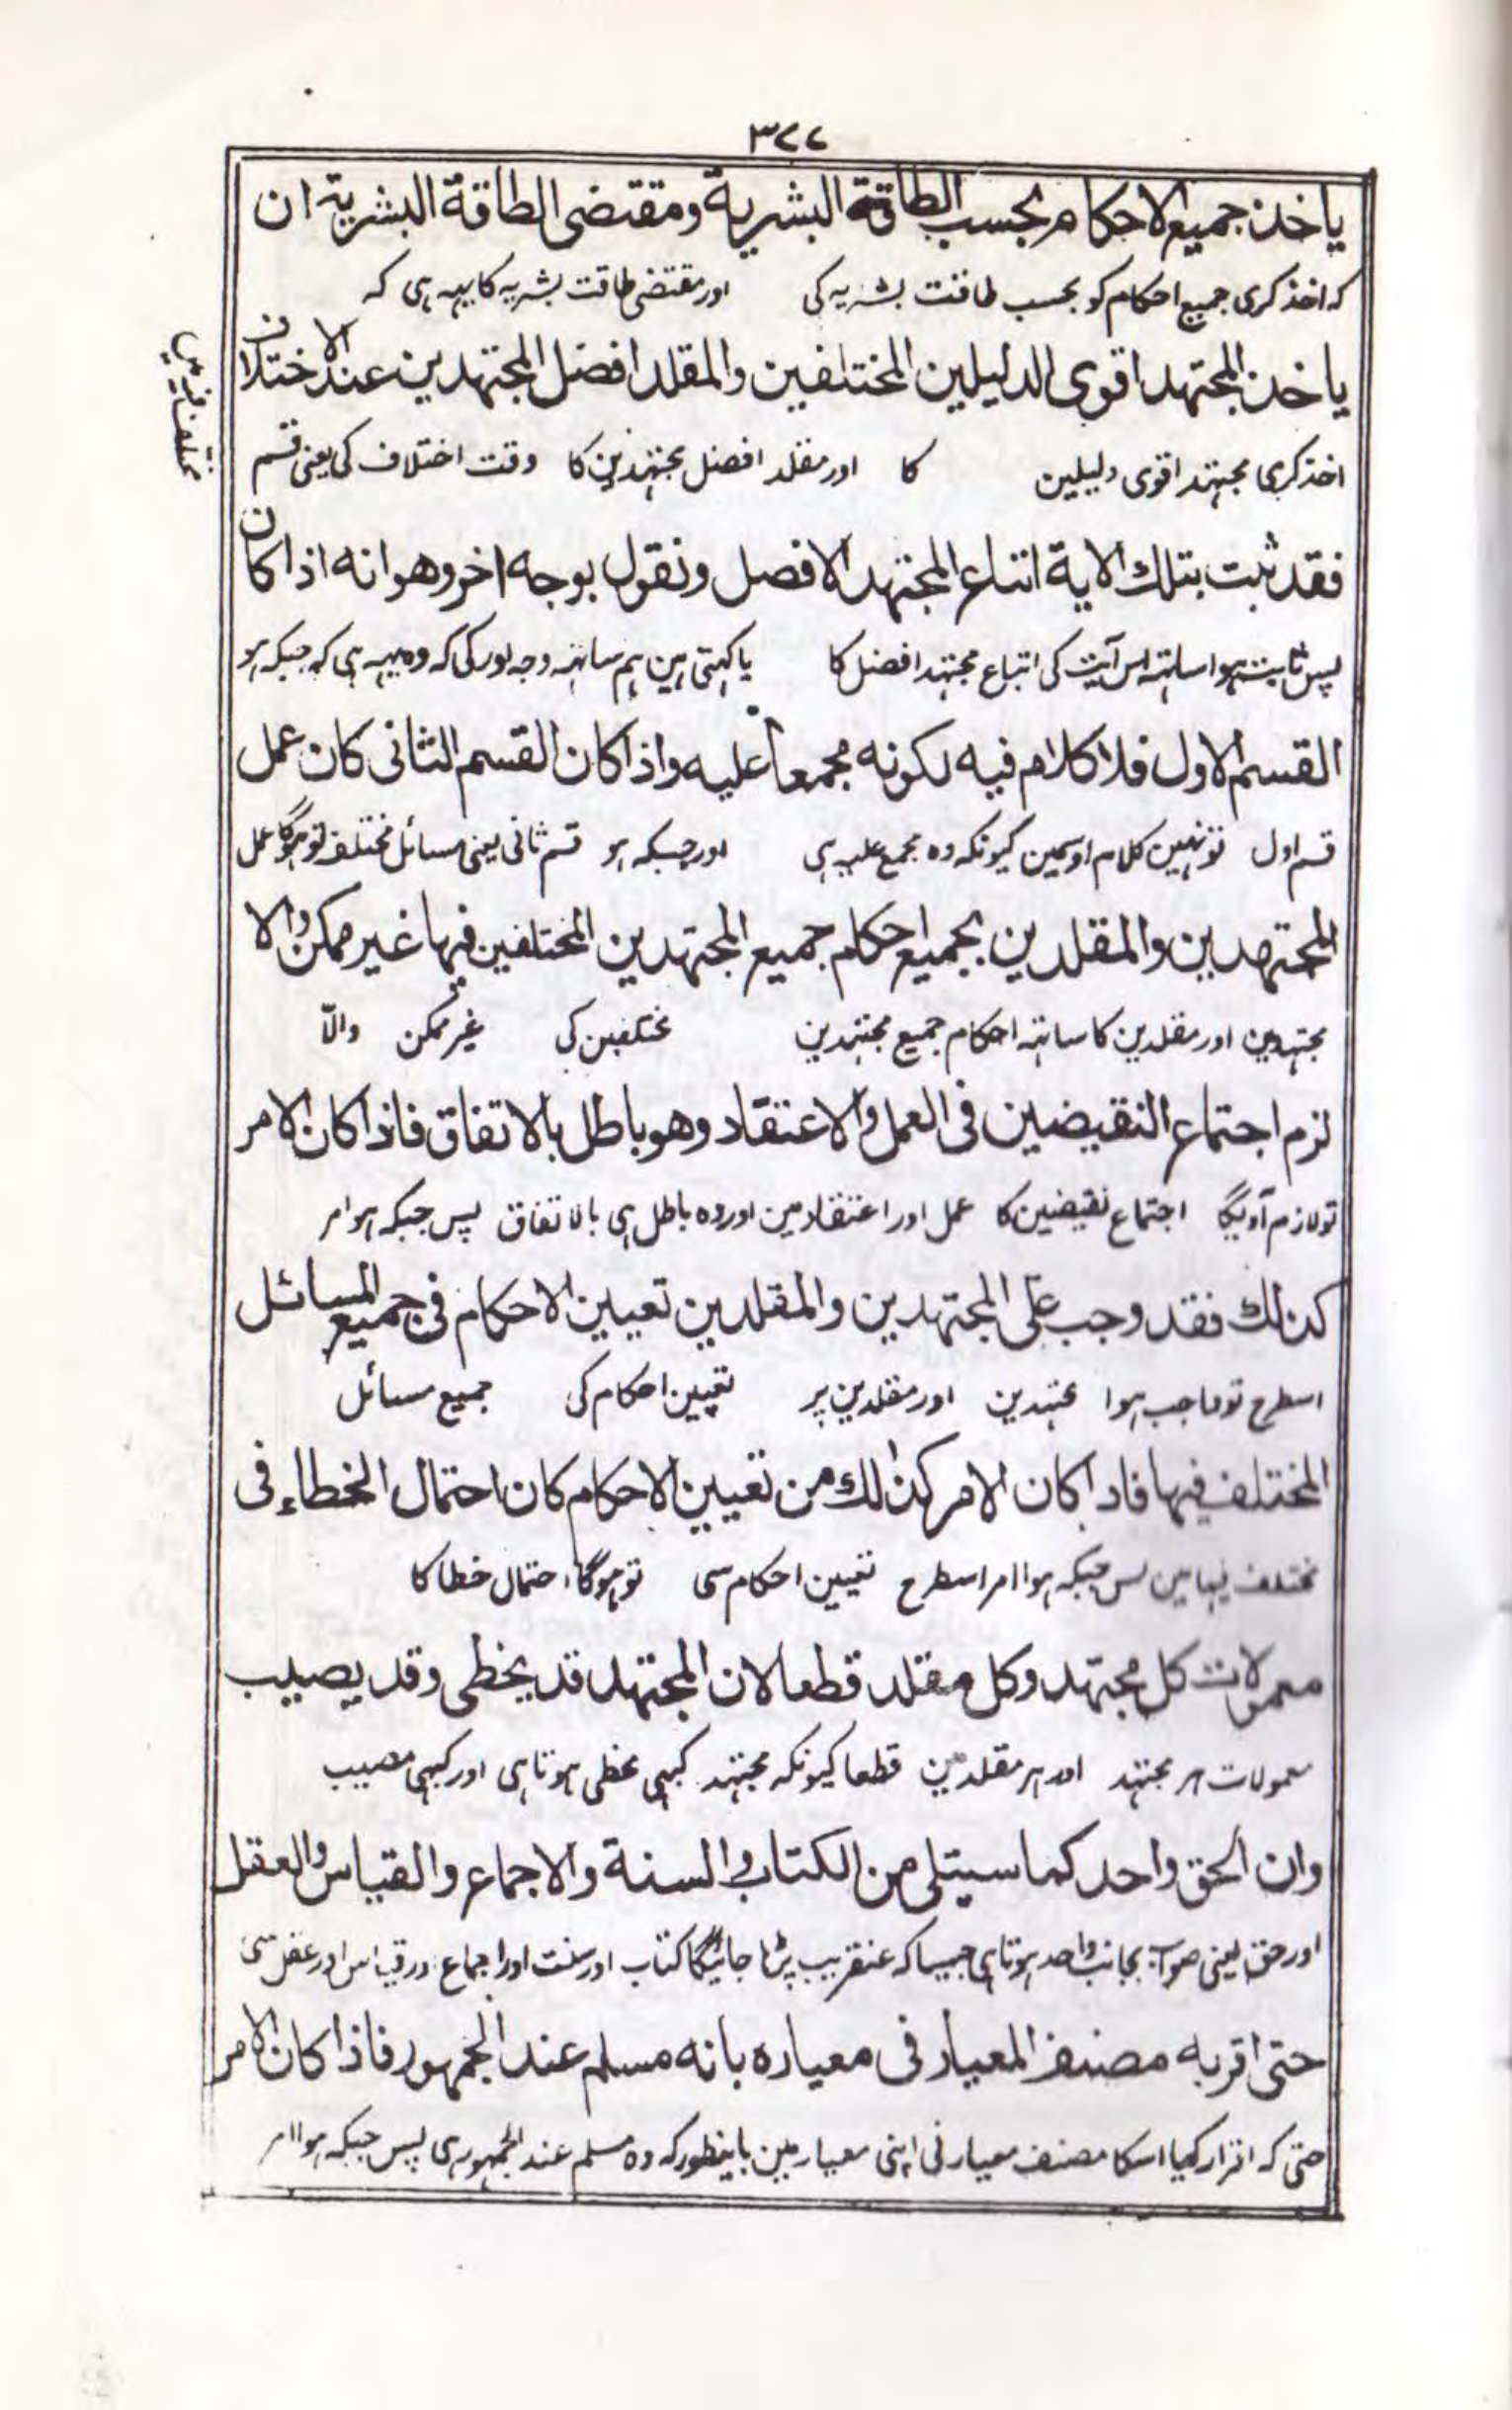 ٣٧٧
ياخذ جميع الاحكام بحسب الطاقة البشرية ومقتضى الطاقة البشرية ان
کہ اخذ کری جمیع احکام کو بحسب طاقت بشریہ کی اور مقتضی طاقت بشریہ کا یہہ ہی کہ
ياخذ المجتهد اقوى الدليلين المختلفين والمقلد افضل المجتهدين عند الاختلاف
اخذ کری مجتہد اقوی دلیلین کا اور مقلد افضل مجتہدین کا وقت اختلاف کی یعنی قسم
مختلف فیہ میں
فقد ثبت بتلك الاية اتباع المجتهد الافضل ونقول بوجه اخر وهو انه اذا كان
پس ثابت ہوا ساتہہ اس آیت کی اتباع مجتہد افضل کا یا کہتی ہین ہم ساتہہ وجہ اور کی کہ وہ یہہ ہی کہ جبکہ ہو
القسم الاول فلا كلام فيه لكونه مجمعا عليه واذا كان القسم الثانى كان عمل
قسم اول تو نہین کلام اوسمین کیونکہ وہ مجمع علیہ ہی اور جبکہ ہو قسم ثانی یعنی مسائل مختلف تو ہوگا عمل
المجتهدين والمقلدين بجميع احكام جميع المجتهدين المختلفين فيها غير ممكن والا
مجتہدین اور مقلدین کا ساتہہ احکام جمیع مجتہدین مختلفین کی غیر ممکن والّا
لزم اجتماع النقيضين فى العمل والاعتقاد وهو باطل بالاتفاق فاذا كان الامر
تو لازم آویگا اجتماع نقیضین کا عمل اور اعتقاد مین اور وہ باطل ہی بالاتفاق پس جبکہ ہوا امر
كذلك فقد وجب على المجتهدين والمقلدين تعيين الاحكام فى جميع المسائل
اسطرح تو واجب ہوا مجتہدین اور مقلدین پر تعیین احکام کی جمیع مسائل
المختلف فيها فاذا كان الامر كذلك من تعيين الاحكام كان احتمال الخطاء فى
مختلف فیہا مین پس جبکہ ہوا امر اسطرح تعیین احکام سی تو ہوگا احتمال خطا کا
معمولات كل مجتهد وكل مقلد قطعا لان المجتهد قد يخطى وقد يصيب
معمولات ہر مجتہد اور ہر مقلد مین قطعا کیونکہ مجتہد کبہی مخطی ہوتا ہی اور کبہی مصیب
وان الحق واحد كما سيتلى من الكتاب والسنة والاجماع والقياس والعقل
اور حق یعنی صواب بجانب واحد ہوتا ہی جیسا کہ عنقریب پڑہا جائیگا کتاب اور سنت اور اجماع اور قیاس اور عقل سی
حتى اقر به مصنف المعيار فى معياره بانه مسلم عند الجمهور فاذا كان الامر
حتی کہ اقرار کیا اسکا مصنف معیار نی اپنی معیار مین باینطور کہ وہ مسلم عند الجمہور ہی پس جبکہ ہوا امر